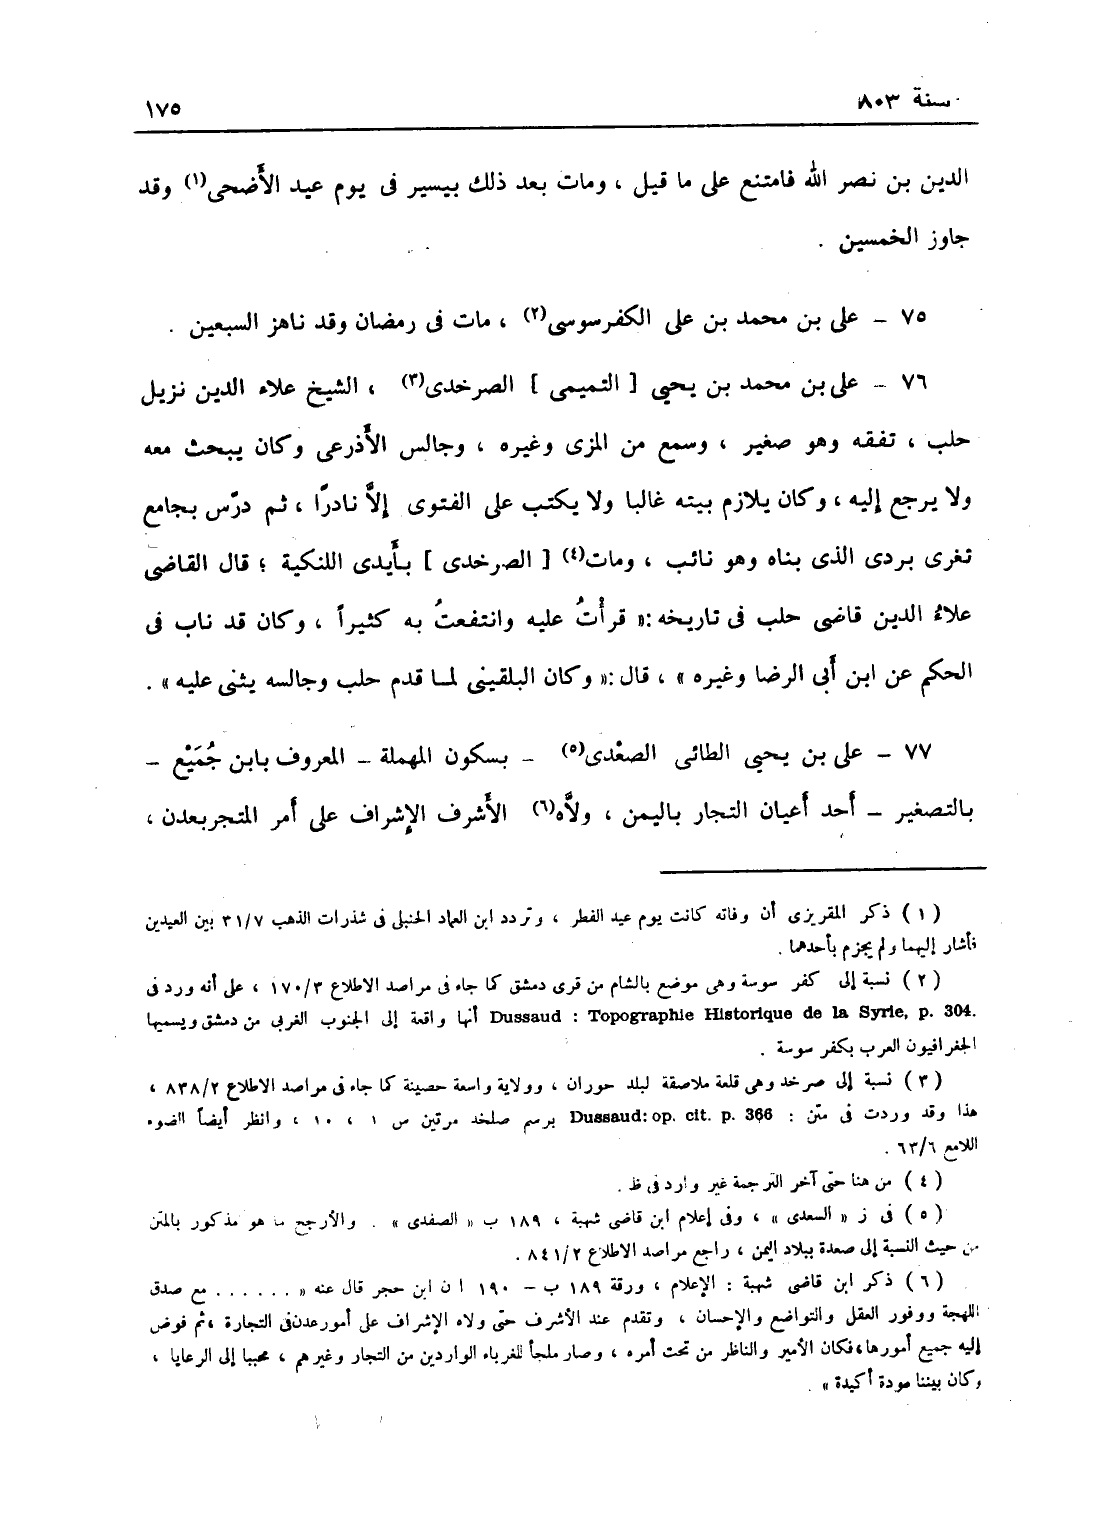 سنة ٨٠٣
١٧٥
الدين بن نصر الله فامتنع على ما قيل ، ومات بعد ذلك بيسير فى يوم عيد الأَضحى(١) وقد
جاوز الخمسين .
٧٥ – على بن محمد بن على الكفرسوسى(٢) ، مات فى رمضان وقد ناهز السبعين .
٧٦ – على بن محمد بن يحيى [ التميمى ] الصرخدى(٣) ، الشيخ علاء الدين نزيل
حلب ، تفقه وهو صغير ، وسمع من المزى وغيره ، وجالس الأَذرعى وكان يبحث معه
ولا يرجع إليه ، وكان يلازم بيته غالبا ولا يكتب على الفتوى إلاَّ نادرًا ، ثم درّس بجامع
تغرى بردى الذى بناه وهو نائب ، ومات(٤) [ الصرخدى ] بأَيدى اللنكية ؛ قال القاضى
علاءُ الدين قاضى حلب فى تاريخه :« قرأْتُ عليه وانتفعتُ به كثيراً ، وكان قد ناب فى
الحكم عن ابن أَبى الرضا وغيره » ، قال :« وكان البلقينى لما قدم حلب وجالسه يثنى عليه » .
٧٧ – على بن يحيى الطائى الصعْدى(٥) – بسكون المهملة – المعروف بابن جُمَيْع –
بالتصغير – أَحد أَعيان التجار باليمن ، ولاَّه(٦) الأَشرف الإِشراف على أَمر المتجر بعدن ،
( ١ ) ذكر المقريزى أن وفاته كانت يوم عيد الفطر ، وتردد ابن العماد الحنبلى فى شذرات الذهب ٣١/٧ بين العيدين
فأشار إليهما ولم يجزم بأحدهما .
( ٢ ) نسبة إلى كفر سوسة وهى موضع بالشام من قرى دمشق كما جاء فى مراصد الاطلاع ١٧٠/٣ ، على أنه ورد فى
Dussaud : Topographie Historique de la Syrie, p. 304. أنها واقعة إلى الجنوب الغربى من دمشق ويسميها
الجغرافيون العرب بكفر سوسة .
( ٣ ) نسبة إلى صرخد وهى قلعة ملاصقة لبلد حوران ، وولاية واسعة حصينة كما جاء فى مراصد الاطلاع ٨٣٨/٢ ،
هذا وقد وردت فى متن : Dussaud: op. cit. p. 366 برسم صلخد مرتين س ١ ، ١٠ ، وانظر أيضاً الضوء
اللامع ٦٣/٦ .
( ٤ ) من هنا حتى آخر الترجمة غير وارد فى ظ .
( ٥ ) فى ز « السعدى » ، وفى إعلام ابن قاضى شهبة ، ١٨٩ ب « الصفدى » . والأرجح ما هو مذكور بالمتن
من حيث النسبة إلى صعدة ببلاد اليمن ، راجع مراصد الاطلاع ٨٤١/٢ .
( ٦ ) ذكر ابن قاضى شهبة : الإعلام ، ورقة ١٨٩ ب – ١٩٠ ا ن ابن حجر قال عنه « . . . . . . مع صدق
اللهجة ووفور العقل والتواضع والإحسان ، وتقدم عند الأشرف حتى ولاه الإشراف على أمور عدن فى التجارة ، ثم فوض
إليه جميع أمورها، فكان الأمير والناظر من تحت أمره ، وصار ملجأ للغرباء الواردين من التجار وغيرهم ، محببا إلى الرعايا ،
وكان بيننا مودة أكيدة » .